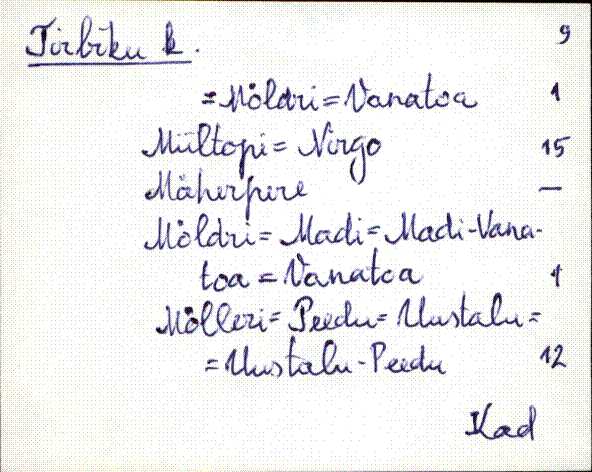 Tirbiku k. 9
=Möldri=Vanatoa 1
Mültopi= Virgo 15
Mäherpere —
Möldri= Madi= Madi-Vana-
toa = Vanatoa 1
Mölleri= Peedu= Uustalu=
=Uustalu-Peedu 12
Kad